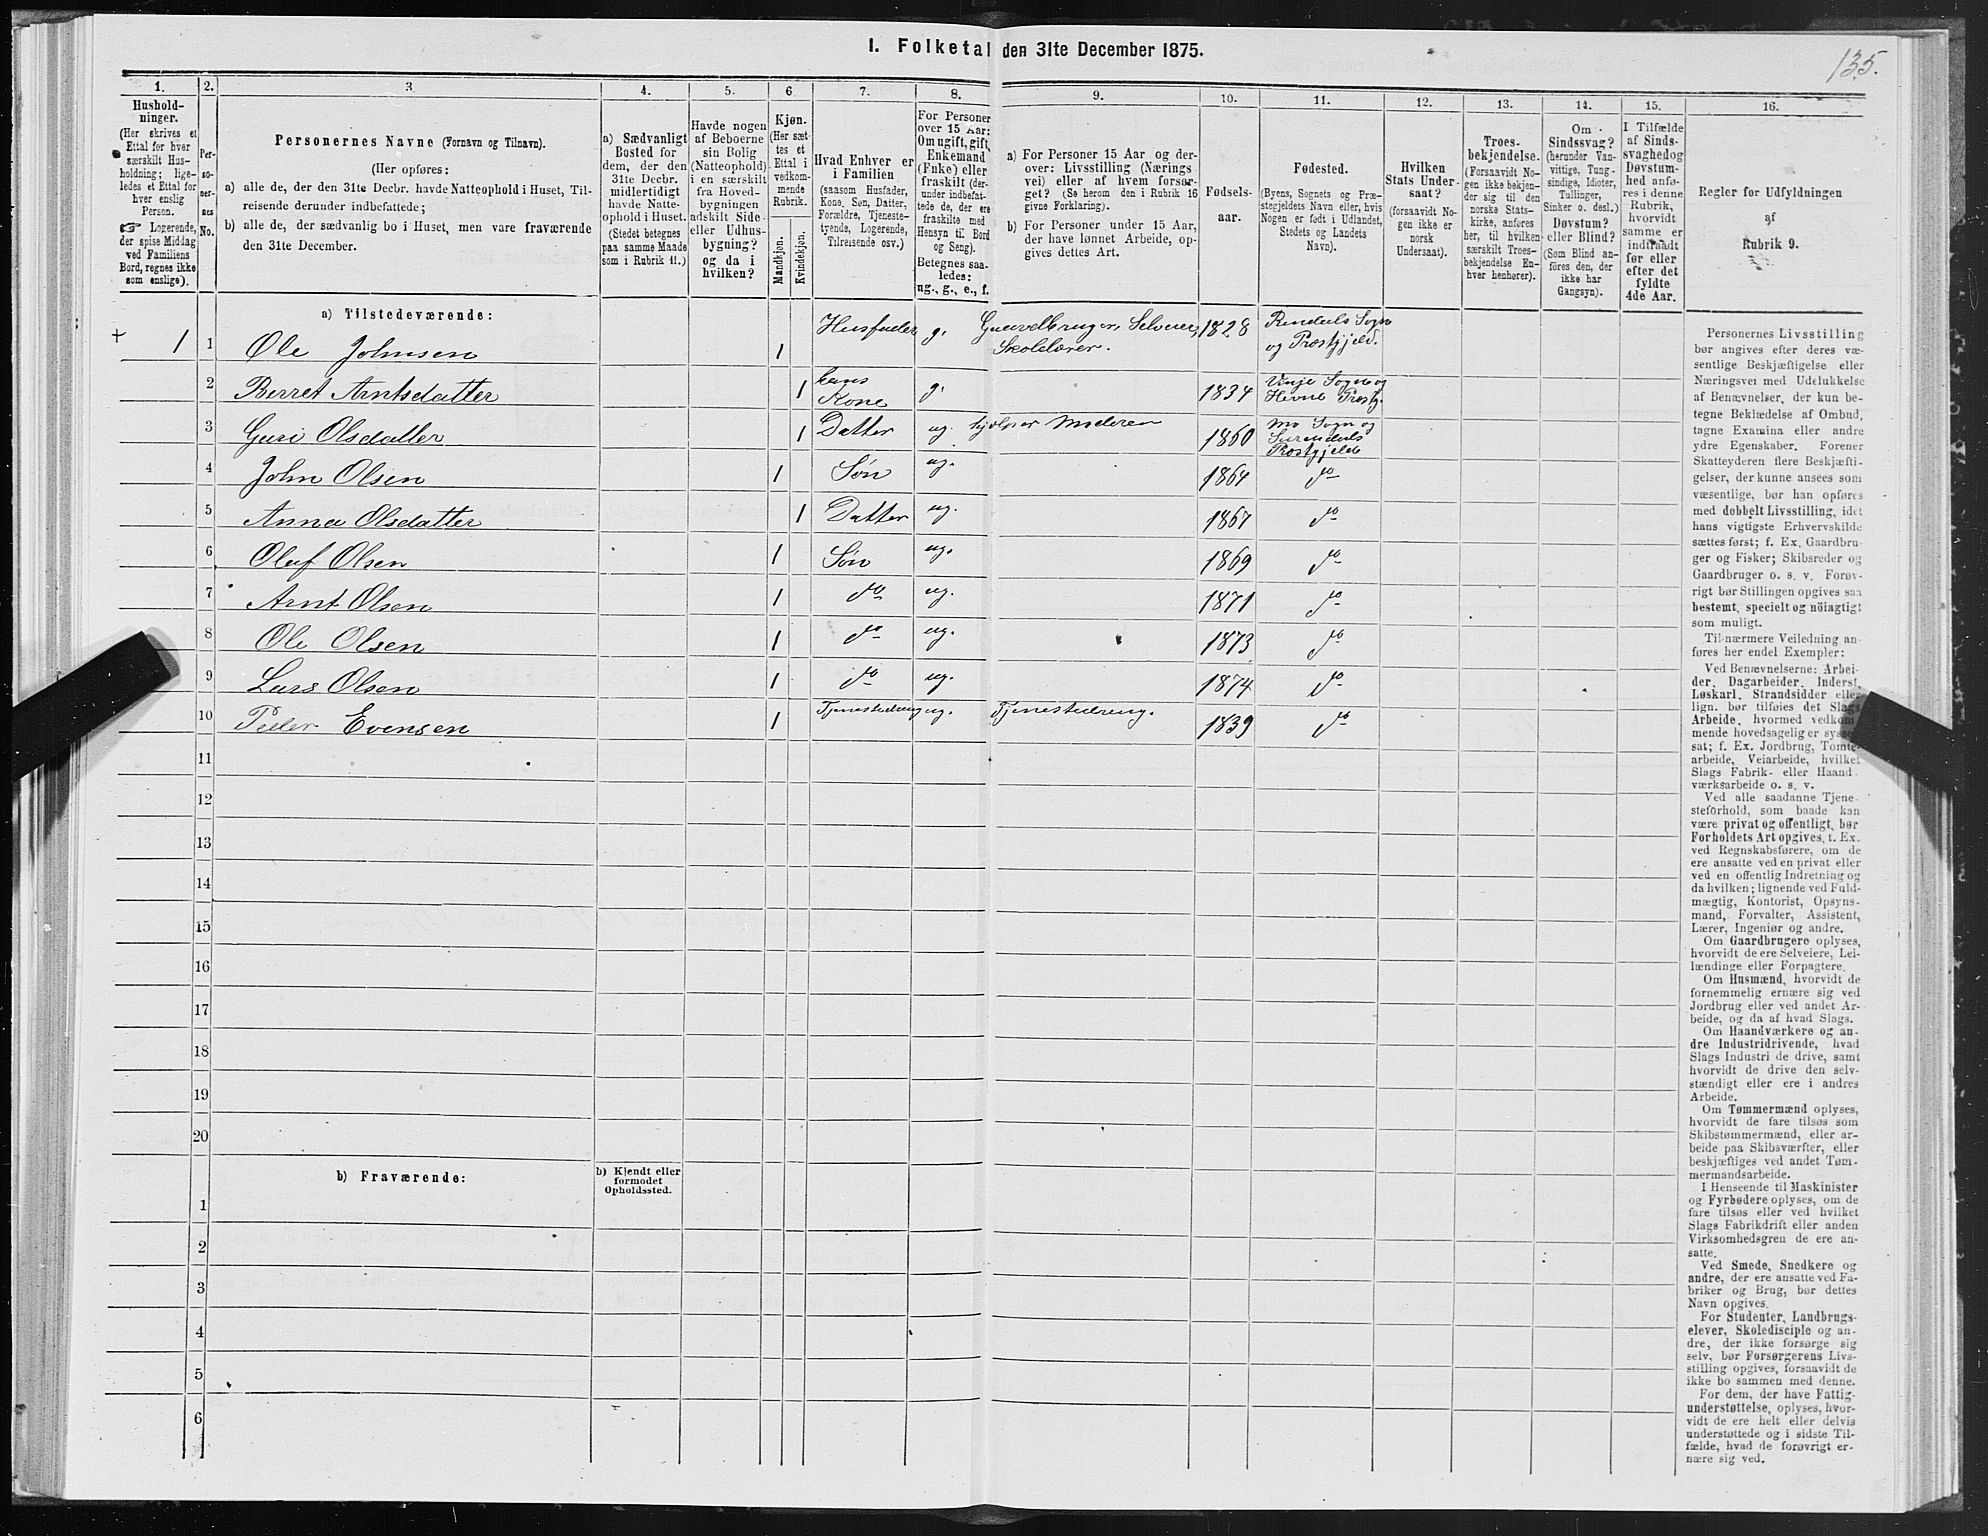 I. Folketal den 31te December 1875.
135.
1.
Hushold-
ninger.
(Her skrives et
Ettal for hver
særskilt Hus-
holdning; lige-
ledes et Ettal for
hver enslig
Person.
☞ Logerende,
der spise Middag
ved Familiens
Bord, regnes ikke
som enslige).
2.
Per-
so-
ner-
nes
No.
3.
Personernes Navne (Fornavn og Tilnavn).
(Her opføres:
a) alle de, der den 31te Decbr. havde Natteophold i Huset, Til-
reisende derunder indbefattede;
b) alle de, der sædvanlig bo i Huset, men vare fraværende
den 31te December.
4.
a) Sædvanligt
Bosted for
dem, der den
31te Decbr.
midlertidigt
havde Natte-
ophold i Huset.
(Stedet betegnes
paa samme Maade
som i Rubrik 11.)
5.
Havde nogen
af Beboerne
sin Bolig
(Natteophold)
i en særskilt
fra Hoved-
bygningen
adskilt Side-
eller Udhus-
bygning?
og da i
hvilken?
6.
Kjøn.
(Her sæt-
tes et
Ettal i
vedkom-
mende
Rubrik.
Mandkjøn.
Kvindekjøn.
7.
Hvad Enhver er
i Familien
(saasom Husfader,
Kone, Søn, Datter,
Forældre, Tjeneste-
tyende, Logerende,
Tilreisende osv.)
8.
For Personer
over 15 Aar:
Om ugift, gift,
Enkemand
(Enke) eller
fraskilt (der-
under indbefat-
tede de, der ere
fraskilte med
Hensyn til Bord
og Seng).
Betegnes saa-
ledes:
ug., g., e., f.
9.
a) For Personer 15 Aar og der-
over: Livsstilling (Nærings-
vei) eller af hvem forsør-
get? (Se herom den i Rubrik 16
givne Forklaring).
b) For Personer under 15 Aar,
der have lønnet Arbeide, op-
gives dettes Art.
10.
Fødsels-
aar.
11.
Fødested.
(Byens, Sognets og Præ-
stegjeldets Navn eller, hvis
Nogen er født i Udlandet,
Stedets og Landets
Navn).
12.
Hvilken
Stats Under-
saat?
(forsaavidt No-
gen ikke er
norsk
Undersaat).
13.
Troes-
bekjendelse.
(Forsaavidt No-
gen ikke bekjen-
der sig til den
norske Stats-
kirke, anføres
her, til hvilken
særskilt Troes-
bekjendelse En-
hver henhører).
14.
Om
Sindssvag?
(herunder Van-
vittige, Tung-
sindige, Idioter,
Tullinger,
Sinker o. desl.)
Døvstum?
eller Blind?
(Som Blind an-
føres den, der
ikke har
Gangsyn).
15.
I Tilfælde
af Sinds-
svaghed og
Døvstum-
hed anfø-
res i denne
Rubrik,
hvorvidt
samme er
indtraadt
før eller
efter det
fyldte
4de Aar.
16.
Regler for Udfyldningen
af
Rubrik 9.
a) Tilstedeværende:
+ 1 1 Ole Johnsen 1 Husfader g. Gaardbruger, Selveier, Skolelærer. 1828 Rindals Sogn og Præstgjeld.
2 Berret Arntsdatter 1 hans Kone g. 1834 Vinje Sogn og Hevne Præstg.
3 Guri Olsdatter 1 Datter ug. hjælper Moderen 1860 Mo Sogn og Surendals Præstgjeld
4 John Olsen 1 Søn ug. 1864 do
5 Anna Olsdatter 1 Datter ug. 1867 do
6 Oluf Olsen 1 Søn ug. 1869 do
7 Arnt Olsen 1 do ug. 1871 do
8 Ole Olsen 1 do ug. 1873 do
9 Lars Olsen 1 do ug. 1874 do
10 Peder Evensen 1 Tjenestedreng ug. Tjenestedreng. 1839 do
11
12
13
14
15
16
17
18
19
20
b) Fraværende:
b) Kjendt eller
formodet
Opholdssted.
1
2
3
4
5
6
Personernes Livsstilling
bør angives efter deres væ-
sentlige Beskjæftigelse eller
Næringsvei med Udelukkelse
af Benævnelser, der kun be-
tegne Beklædelse af Ombud,
tagne Examina eller andre
ydre Egenskaber. Forener
Skatteyderen flere Beskjæfti-
gelser, der kunne ansees som
væsentlige, bør han opføres
med dobbelt Livsstilling, idet
hans vigtigste Erhvervskilde
sættes først; f. Ex. Gaardbru-
ger og Fisker; Skibsreder og
Gaardbruger o. s. v. Forøv-
rigt bør Stillingen opgives saa
bestemt, specielt og nöiagtigt
som muligt.
Til nærmere Veiledning an-
føres her endel Exempler:
Ved Benævnelserne: Arbei-
der, Dagarbeider, Inderst,
Løskarl, Strandsidder eller
lign. bør tilføies det Slags
Arbeide, hvormed vedkom-
mende hovedsagelig er syssel-
sat; f. Ex. Jordbrug, Tomte-
arbeide, Veiarbeide, hvilket
Slags Fabrik- eller Haand-
værksarbeide o. s. v.
Ved alle saadanne Tjene-
steforhold, som baade kan
være privat og offentligt, bør
Forholdets Art opgives, t. Ex.
ved Regnskabsførere, om de
ere ansatte ved en privat eller
ved en offentlig Indretning og
da hvilken; lignende ved Fuld-
mægtig, Kontorist, Opsyns-
mand, Forvalter, Assistent,
Lærer, Ingeniør og andre.
Om Gaardbrugere oplyses,
hvorvidt de ere Selveiere, Lei-
lændinge eller Forpagtere.
Om Husmænd, hvorvidt de
fornemmelig ernære sig ved
Jordbrug eller ved andet Ar-
beide, og da af hvad Slags.
Om Haandværkere og an-
dre Industridrivende, hvad
Slags Industri de drive, samt
hvorvidt de drive den selv-
stændigt eller ere i andres
Arbeide.
Om Tømmermænd oplyses,
hvorvidt de fare tilsøs som
Skibstømmermænd, eller ar-
beide paa Skibsværfter, eller
beskjæftiges ved andet Tøm-
mermandsarbeide.
I Henseende til Maskinister
og Fyrbødere oplyses, om de
fare tilsøs eller ved hvilket
Slags Fabrikdrift eller anden
Virksomhedsgren de ere an-
satte.
Ved Smede, Snedkere og
andre, der ere ansatte ved Fa-
briker og Brug, bør dettes
Navn opgives.
For Studenter, Landbrugs-
elever, Skoledisciple og an-
dre, der ikke forsørge sig
selv, bør Forsørgerens Livs-
stilling opgives, forsaavidt de
ikke bo sammen med denne.
For dem, der have Fattig-
understøttelse, oplyses, hvor-
vidt de ere helt eller delvis
understøttede og i sidste Til-
fælde, hvad de forøvrigt er-
nære sig ved.